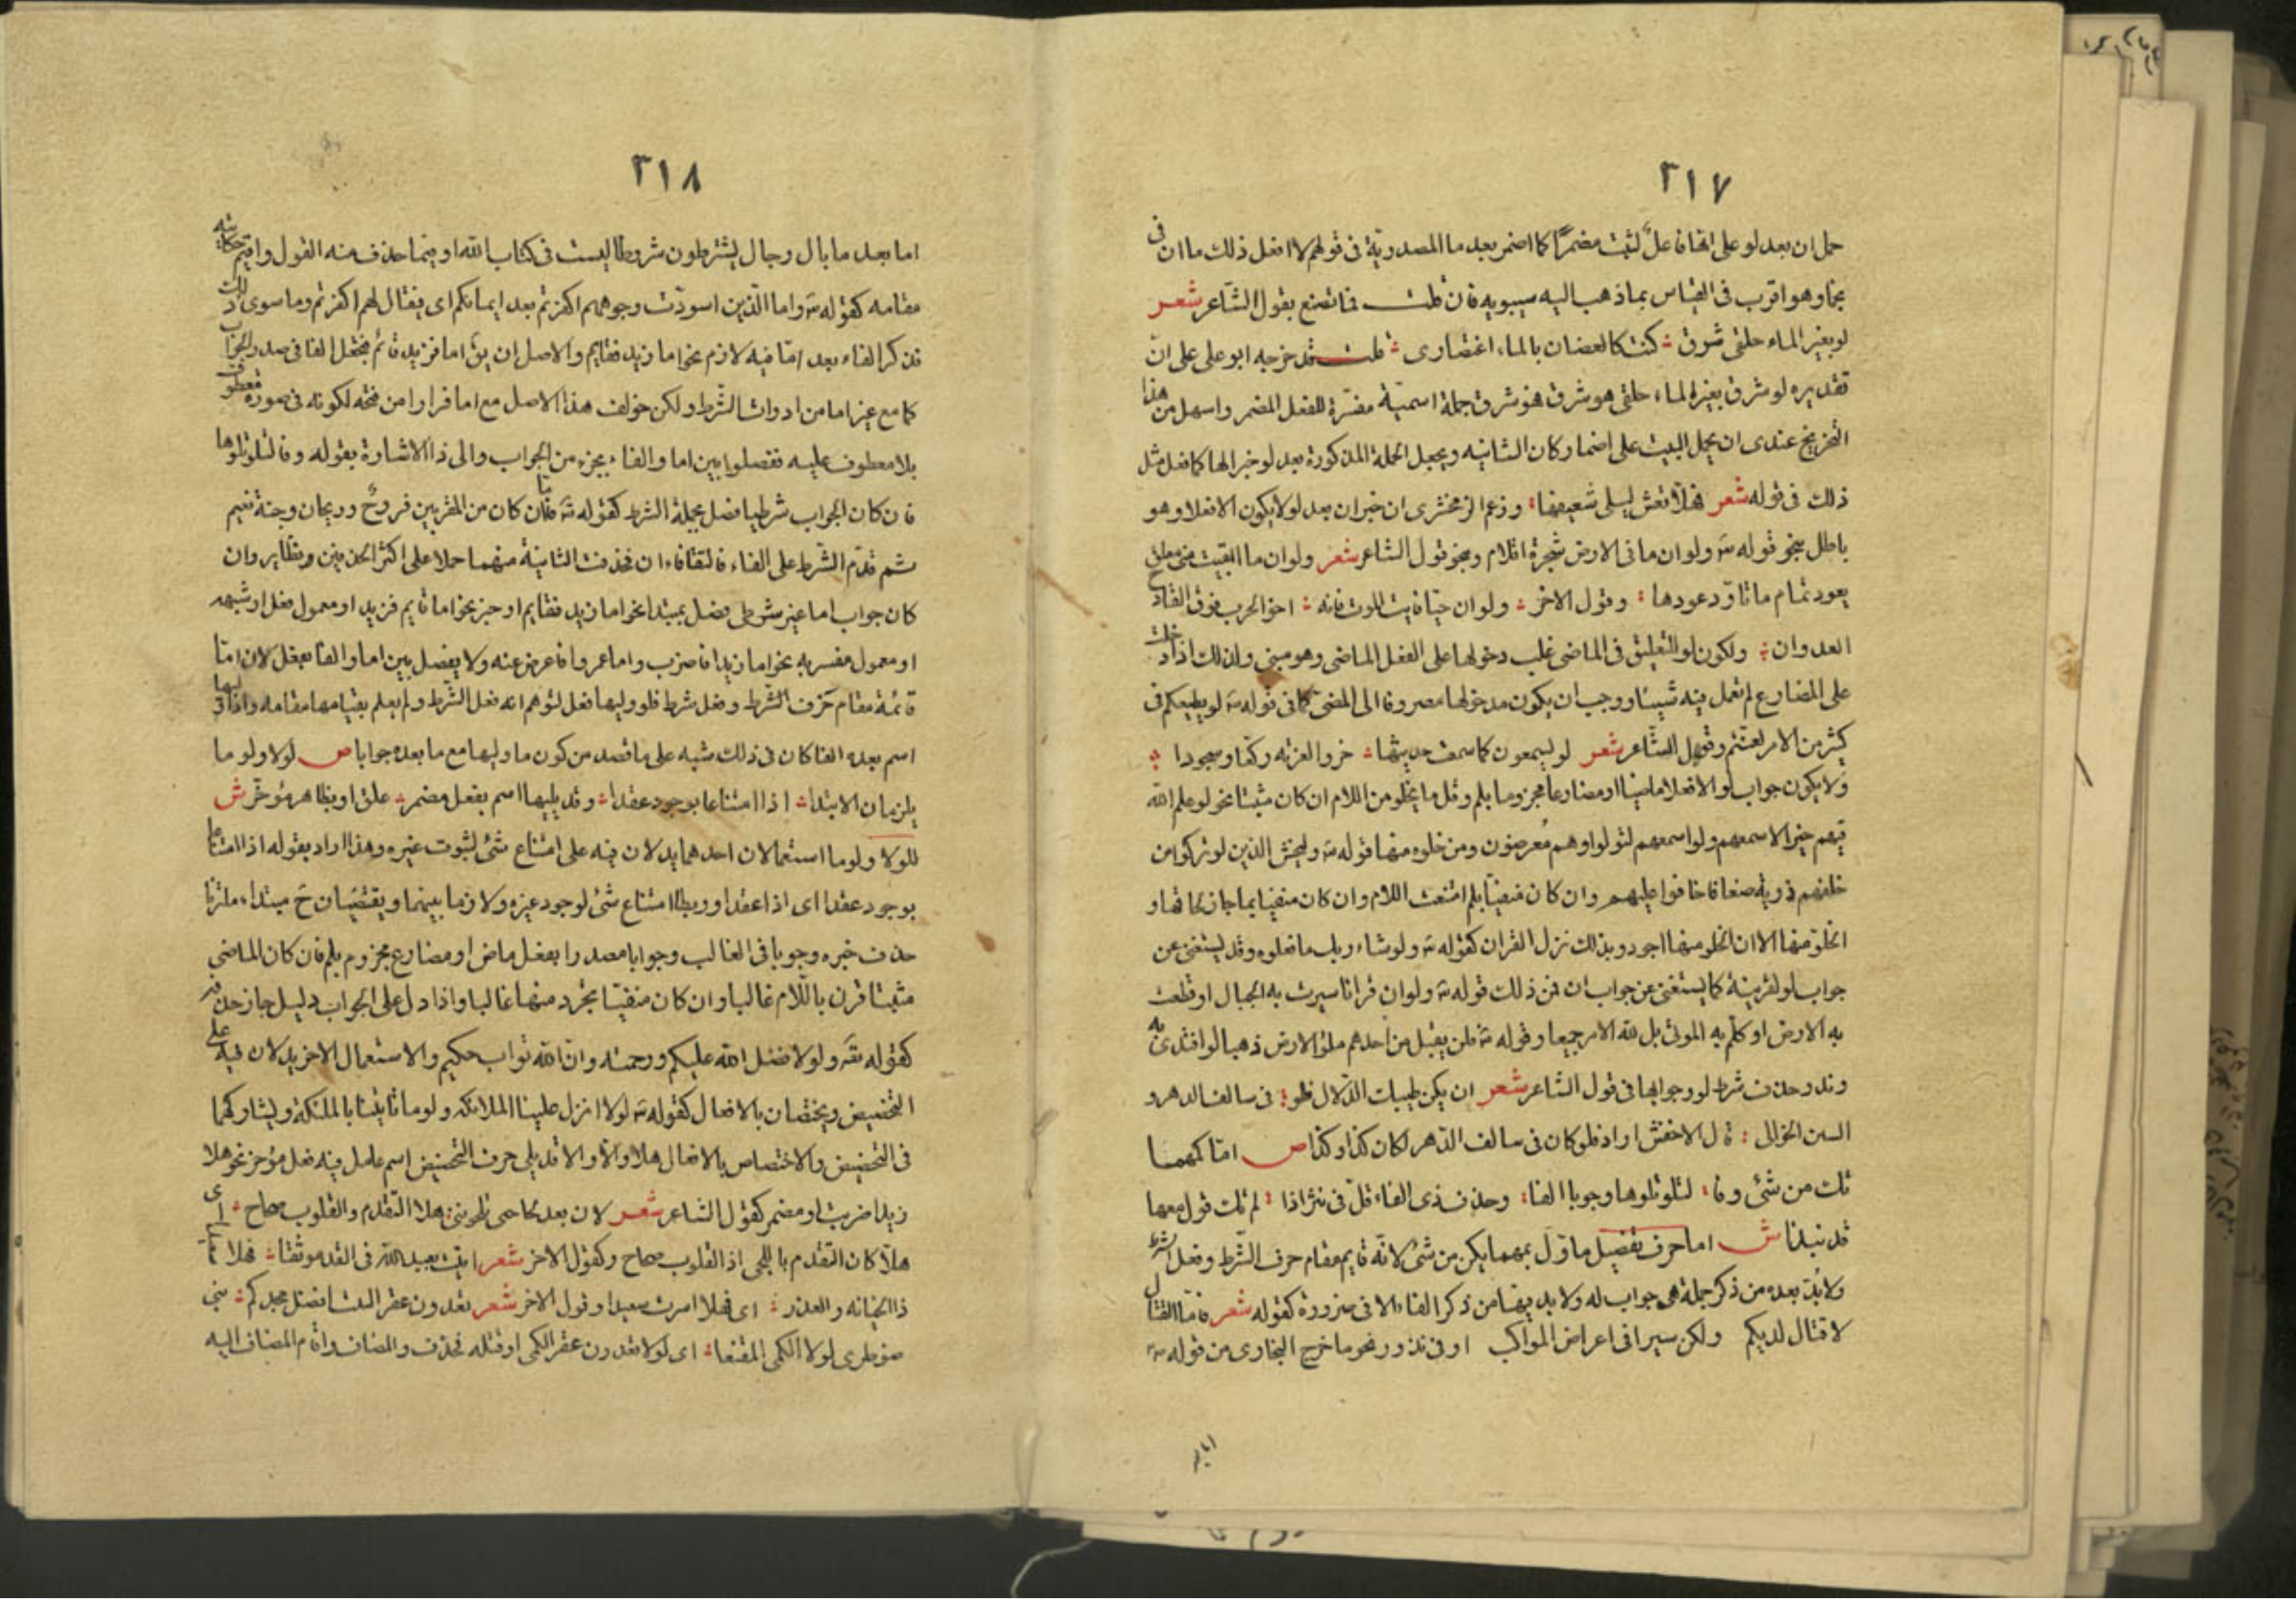 ٢١٧
حمل ان بعد لو على انها فاعل لثبت مضمرا كما اضمر بعد ما المصدرية فى قولهم لا افعل ذلك ما ان فى
نجما وهو اقرب فى القياس بما ذهب اليه سيبويه فان قلت فما تصنع بقول الشاعر شعر
لو بغير الماء حلقى شرق كنت كالغصان بالماء اعتصارى قلت قد خرجه ابو على على ان
تقديره لو شرق بغير الماء حلقى هو شرق فهو شرق جملة اسمية مفسرة للفعل المضمر واسهل من هذا
التخريج عندى ان يحمل البيت على اضمار كان الشانيه ويجعل الجملة المذكورة بعد لو خبرا لها كما فعل مثل
ذلك فى قوله شعر فهلا نفس ليلى شفيعها وزعم الزمخشرى ان خبر ان بعد لو لا يكون الا فعلا وهو
باطل بنحو قوله تع ولو ان ما فى الارض شجرة اقلام ونحو قول الشاعر شعر ولو ان ما ابقيت منى معلق
بعود ثمام ما تاود عودها وقول الاخر ولو ان حيا فايت الموت فاته اخو الحرب فوق القارح
العدوان ولكون لو للتعليق فى الماضى غلب دخولها على الفعل الماضى وهو مبنى ولذلك اذا دخلت
على المضارع لم تعمل فيه شيئا ووجب ان يكون مدخولها مصروفا الى المضى كما فى قوله تع لو يطيعكم فى
كثير من الامر لعنتم وقول الشاعر شعر لو يسمعون كما سمعت حديثها خروا لعزته ركعا وسجودا
ولا يكون جواب لو الا فعلا ماضيا او مضارعا مجزوما بلم وقل ما يخلو من اللام ان كان مثبتا نحو لو علم الله
فيهم خيرا لاسمعهم ولو اسمعهم لتولوا وهم معرضون ومن خلوه منها قوله تع وليخش الذين لو تركوا من
خلفهم ذرية ضعافا خافوا عليهم وان كان منفيا بلم امتنعت اللام وان كان منفيا بما جاز لحاقها و
الخلو منها الا ان الخلو منها اجود وبذلك نزل القران كقوله تع ولو شاء ربك ما فعلوه وقد يستغنى عن
جواب لو لقرينة كما يستغنى عن جواب ان فمن ذلك قوله تع ولو ان قرانا سيرت به الجبال او قطعت
به الارض او كلم به الموتى بل لله الامر جميعا وقوله تع فلن يقبل من احدهم ملؤ الارض ذهبا لو افتدى به
وندر حذف شرط لو وجوابها فى قول الشاعر شعر ان يكن طبك الدلال فلو فى سالف الدهر و
السنين الخوالى قال الاخفش اراد فلو كان فى سالف الدهر لكان كذا وكذا ص اما كمهما
تك من شئ وفا لتلو تلوها وجوبا الفا وحذف ذى الفاء قل فى نثر اذا لم تك قول معها
قد نبذا ش اما حرف تفصيل ماول بمهما يكن من شئ لانه قايم مقام حرف الشرط وفعل الشرط
ولا بد بعده من ذكر جملة هى جواب له ولا بد فيها من ذكر الفاء الا فى ضرورة كقوله شعر فاما القتال
لا قتال لديكم ولكن سيرا فى اعراض المواكب او فى ندور نحو ما خرج البخارى من قوله ص
اما
٢١٨
اما بعد ما بال رجال يشترطون شروطا ليست فى كتاب الله او فيما حذف منه القول واقيم حكايته
مقامه كقوله تع واما الذين اسودت وجوههم اكفرتم بعد ايمانكم اى فيقال لهم اكفرتم وما سوى ذلك
فذكر الفاء بعد اما فيه لازم نحو اما زيد فقايم والاصل ان يق اما فزيد قائم فتجعل الفا فى صدر الجواب
كما مع غير اما من ادوات الشرط ولكن خولف هذا الاصل مع اما فرارا من قبحه لكونه فى صورة معطوف
بلا معطوف عليه ففصلوا بين اما والفاء بجزء من الجواب والى ذا الاشارة بقوله وفا لتلو تلوها
فان كان الجواب شرطيا فصل بجملة الشرط كقوله تع فاما ان كان من المقربين فروح وريحان وجنة نعيم
ثم قدم الشرط على الفاء فالتقا فاءان فحذفت الثانية منهما حملا على اكثر الحذفين ونظاير وان
كان جواب اما غير شرطى فصل بمبتدا نحو اما زيد فقايم او خبر نحو اما قايم فزيد او معمول فعل او شبهه
او معمول مفسر به نحو اما زيدا فاضرب واما عمروا فاعرض عنه ولا يفصل بين اما والفا بفعل لان اما
قائمة مقام حرف الشرط وفعل شرط فلو وليها فعل لتوهم انه فعل الشرط ولم يعلم بقيامها مقامه واذا وليها
اسم بعده الفا كان فى ذلك تنبيه على ما قصد من كون ما وليها مع ما بعده جوابا ص لولا ولو ما
يلزمان الابتدا اذا امتناعا بوجود عقدا وقد يليها اسم بفعل مضمر علق او بظاهر مؤخر ش
للولا ولوما استعمالان احدهما يدلان فيه على امتناع شئ لثبوت غيره وهذا اراد بقوله اذا امتناعا
بوجود عقدا اى اذا عقدا وربطا امتناع شئ لوجود غيره ولازما بينهما ويقتضيان ح مبتداء ملتزما
حذف خبره وجوبا فى الغالب وجوابا مصدرا بفعل ماض او مضارع مجزوم بلم فان كان الماضى
مثبتا قرن باللام غالبا وان كان منفيا تجرد منها غالبا واذا دل على الجواب دليل جاز حذفه
كقوله تع ولولا فضل الله عليكم ورحمته وان الله تواب حكيم والاستعمال الاخر يدلان فيه على
التحضيض ويختصان بالافعال كقوله تع لولا انزل علينا الملائكة ولوما تاتينا بالملئكة ويشاركهما
فى التحضيض والاختصاص بالافعال هلا والا والا قد يلى حرف التحضيض اسم عامل فيه فعل مؤخر نحو هلا
زيدا ضربت او مضمر كقول الشاعر شعر الان بعد لجاجى تلحوننى هلا التقدم والقلوب صحاح اى
هلا كان التقدم باللحى اذ القلوب صحاح وكقول الاخر شعر اتيت بعبد الله فى القد موثقا فهلا سعيدا
ذا الخيانه والغدر اى فهلا اسرت سعيدا وقول الاخر شعر تعدون عقر النيب افضل مجدكم بنى
ضوطرى لولا الكمى المقنعا اى لولا تعدون عقر الكمى او قتله فحذف والمضاف واقام المضاف اليه